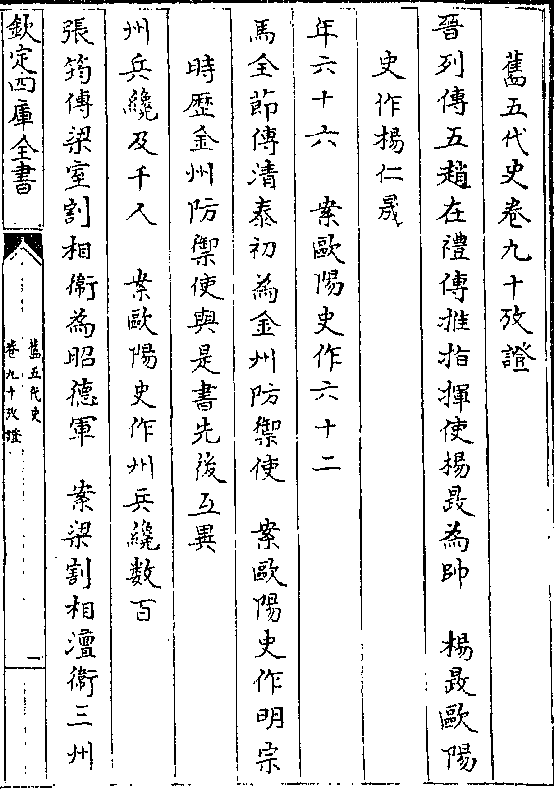 舊五代史卷九十攷證
晉列傳五趙在禮傳推指揮使楊晸為帥　楊晸歐陽
史作楊仁晟
年六十六　案歐陽史作六十二
馬全節傳清泰初為金州防禦使　案歐陽史作明宗
時歷金州防禦使與是書先後互異
州兵纔及千人　案歐陽史作州兵纔數百
張筠傳梁室割相衞為昭德軍　案梁割相澶衞三州
欽定四庫全書
舊五代史
卷九十攷證
一